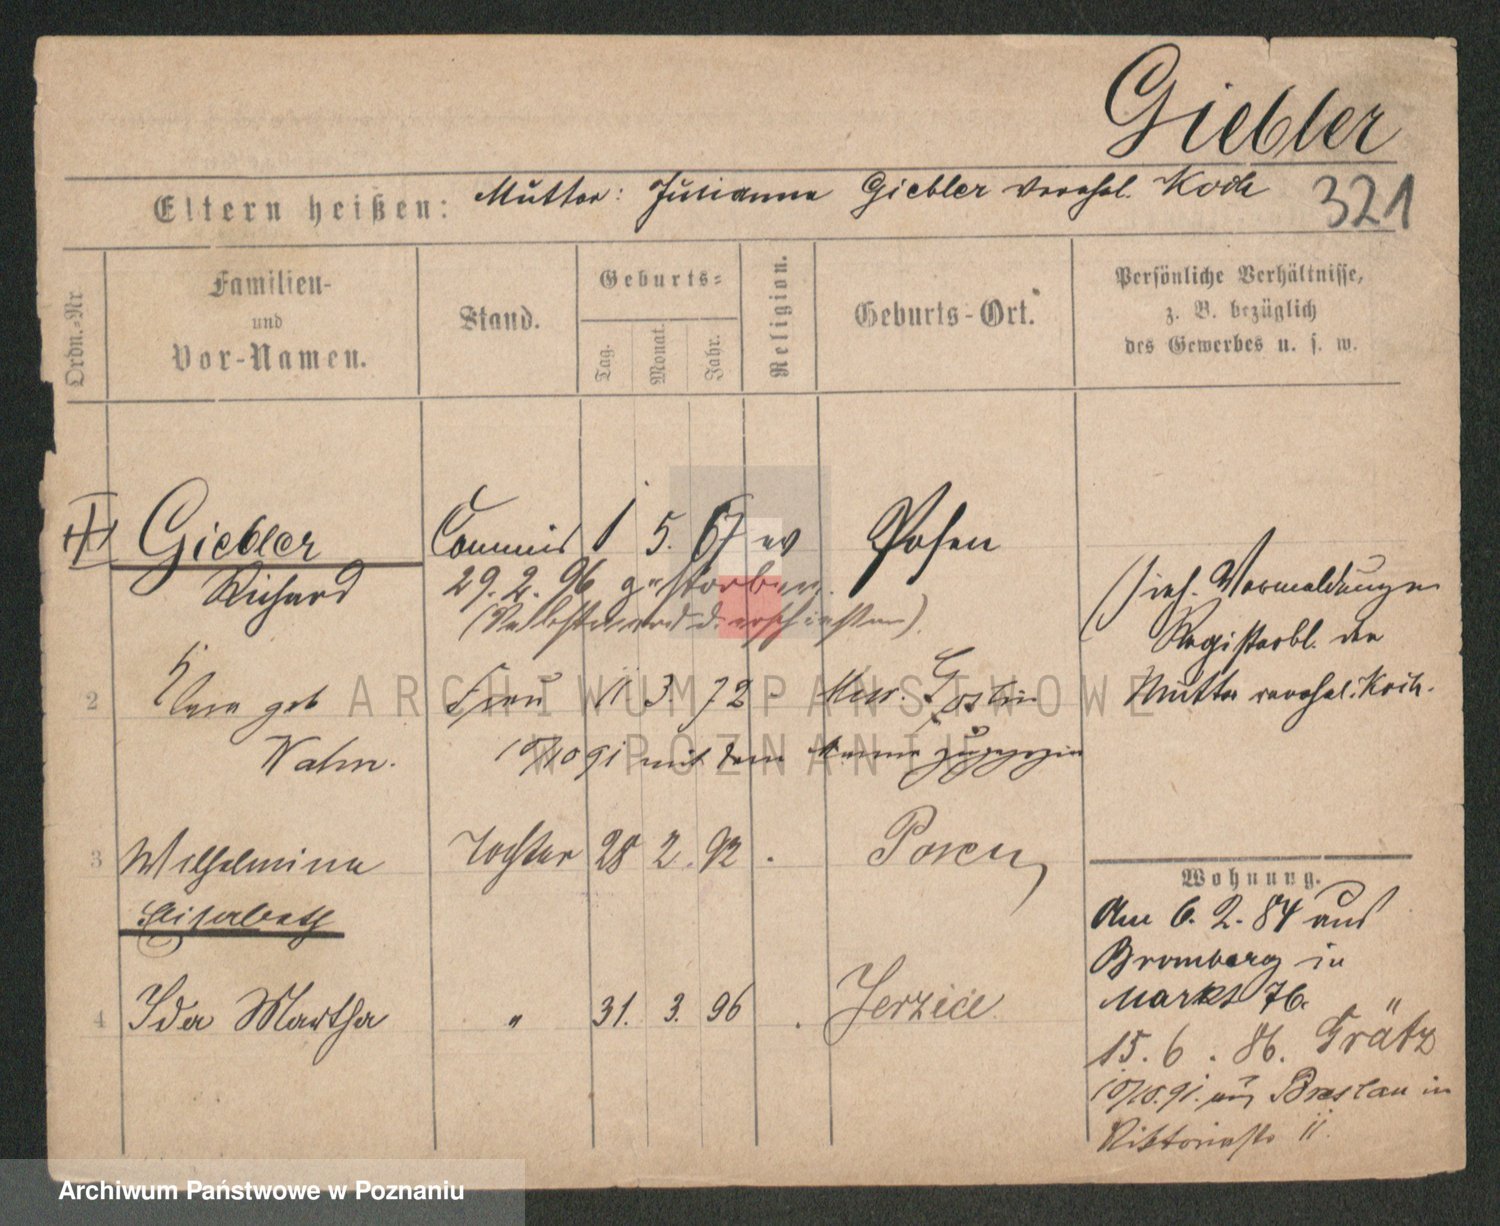 Giebler
Eltern heißen: Mutter: Julianna Giebler verehel. Koch 321
Ordn.-Nr.
Familien-
und
Vor-Namen.
Stand.
Geburts-
Tag.
Monat.
Jahr.
Religion.
Geburts-Ort.
Persönliche Verhältnisse,
z. B. bezüglich
des Gewerbes u. s. w.
Giebler Commis 1 5. 67 ev Posen
Richard 29. 2. 96 gestorben.
(Selbstmord d. erschießen).
(sieh. Vermeldungen
Registerbl. der
Mutter verehel. Koch.
2 geb Frau 11 3. 72 - Gostin
Hahn. 10/10 91 mit dem Manne zugezogen
3 Wilhelmine Tochter 28 2. 92 Posen
Elisabeth
4 Ida Martha " 31. 3. 96 Jerzice
Wohnung.
Am 6. 2. 84 aus
Bromberg in
Markt 76.
15. 6. 86. Grätz
10/10. 91. aus Breslau in
Viktoriastr 11.
ARCHIWUM PAŃSTWOWE
W POZNANIU
Archiwum Państwowe w Poznaniu